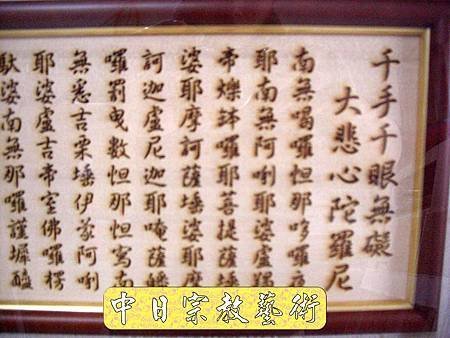 千手千眼無礙
大悲心陀羅尼
南無喝囉怛那哆囉夜
耶南無阿唎耶婆盧羯
帝爍鉢囉耶菩提薩埵
婆耶摩訶薩埵婆耶摩
訶迦盧尼迦耶唵薩皤
囉罰曳數怛那怛寫南
無悉吉栗埵伊蒙阿唎
耶婆盧吉帝室佛囉楞
馱婆南無那囉謹墀醯
中日宗教藝術